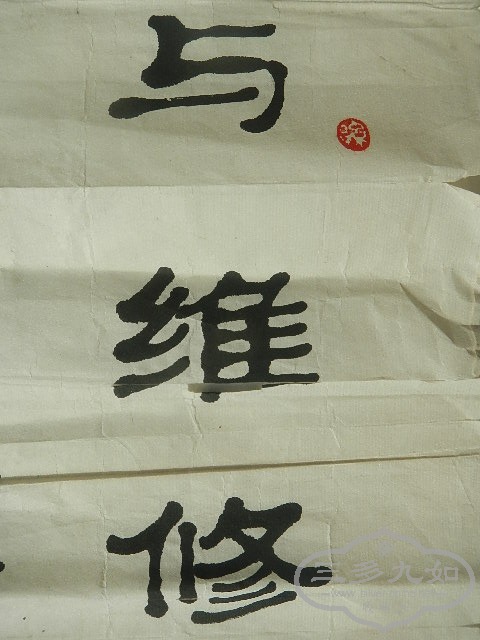 与
维
修
三多九如